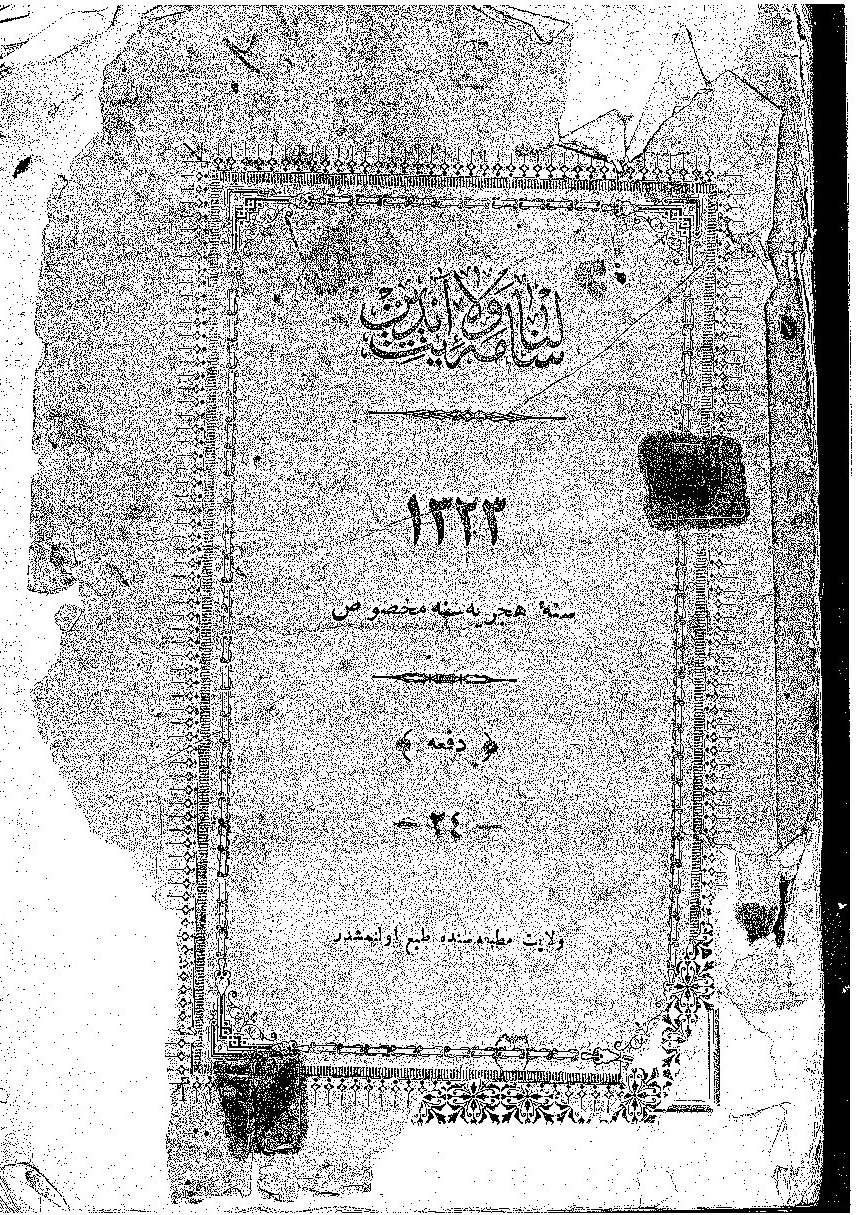 سالنامه ولایت آیدین
١٣٢٣
سنهٔ هجریه سنه مخصوص
دفعه
٢٤
ولایت مطبعه سنده طبع اولنمشدر